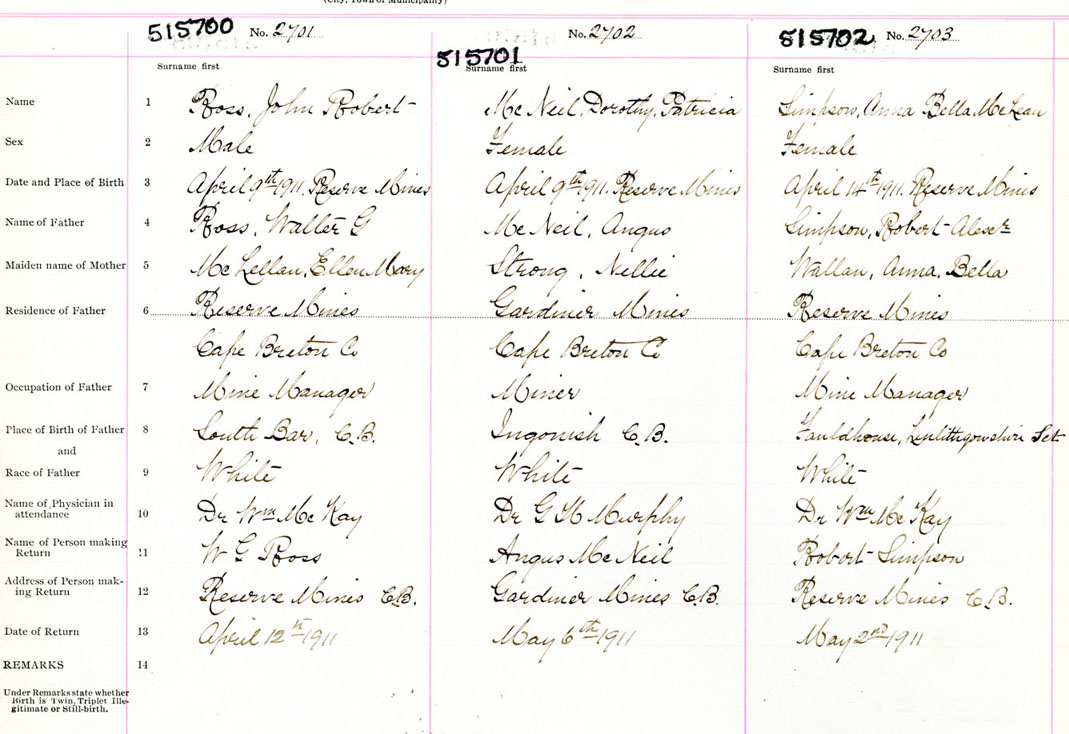 (City, Town or Municipality)
515700 No. 2701 515701 No. 2702 515702 No. 2703
Surname first Surname first Surname first
Name 1 Ross, John Robert Mc Neil, Dorothy, Patricia Simpson, Anna Bella McLean
Sex 2 Male Female Female
Date and Place of Birth 3 April 9th 1911. Reserve Mines April 9th 1911. Reserve Mines April 14th 1911. Reserve Mines
Name of Father 4 Ross, Walter G Mc Neil, Angus Simpson, Robert Alexr
Maiden name of Mother 5 Mc Lellan, Ellen Mary Strong, Nellie Wallan, Anna, Bella
Residence of Father 6 Reserve Mines Gardiner Mines Reserve Mines
Cape Breton Co Cape Breton Co Cape Breton Co
Occupation of Father 7 Mine Manager Miner Mine Manager
Place of Birth of Father 8 South Bar, C.B. Ingonish C.B. Fauldhouse, Linlithgowshire Sct
and
Race of Father 9 White White White
Name of Physician in
attendance 10 Dr Wm Mc Kay Dr G H Murphy Dr Wm Mc Kay
Name of Person making
Return 11 W G Ross Angus Mc Neil Robert Simpson
Address of Person mak-
ing Return 12 Reserve Mines C.B. Gardiner Mines C.B. Reserve Mines C.B.
Date of Return 13 April 12th 1911 May 6th 1911 May 2nd 1911
REMARKS 14
Under Remarks state whether
Birth is Twin, Triplet Ille-
gitimate or Still-birth.